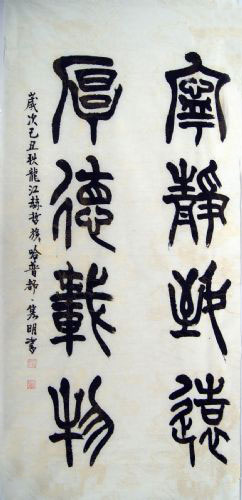 寧靜致遠
厚德載物
歲次己丑秋龍江赫哲族哈普都·隽明書